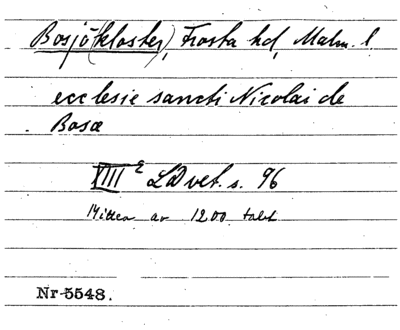 Bosjö(kloster), Frosta hd, Malm. l.
ecclesie sancti Nicolai de
Bosœ
XIII 2 LDvet. s. 96
Mitten av 1200 talet
Nr 5548.